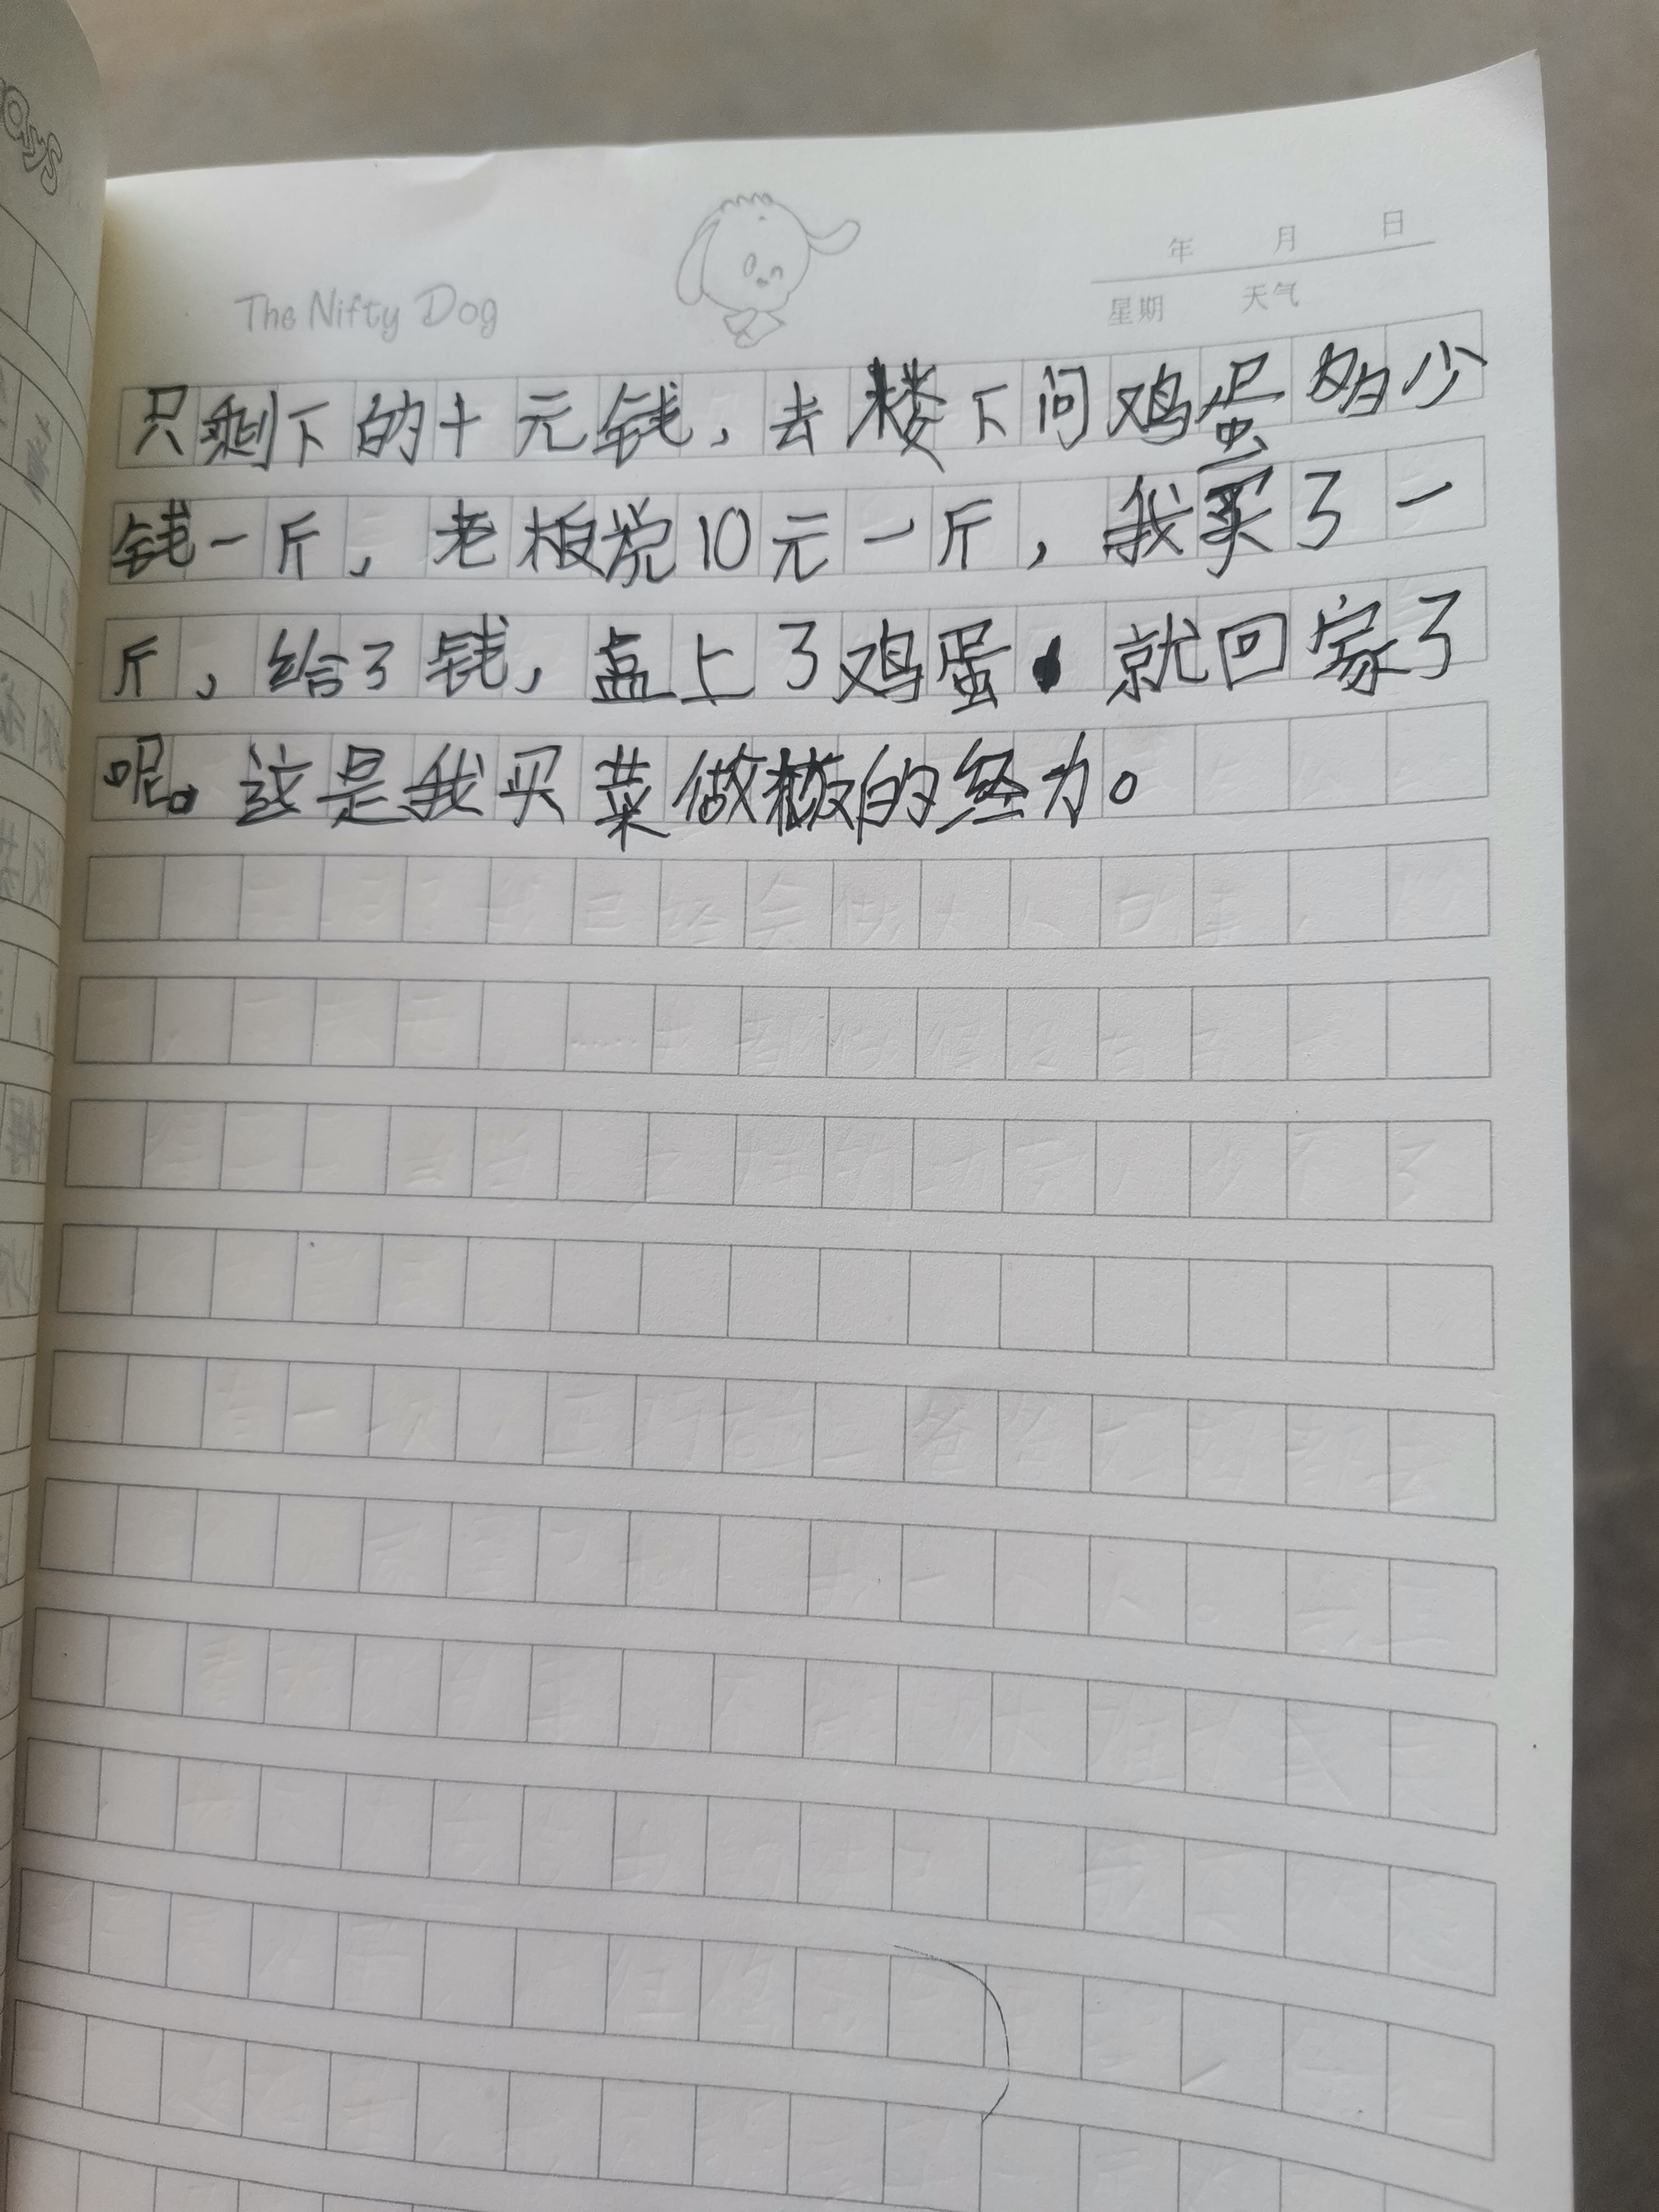 年 月 日
The Nifty Dog
星期 天气
只剩下的十元钱，去楼下问鸡蛋多少
钱一斤，老板说10元一斤，我买了一
斤，给了钱，盖上了鸡蛋。就回家了
呢。这是我买菜做饭的经力。